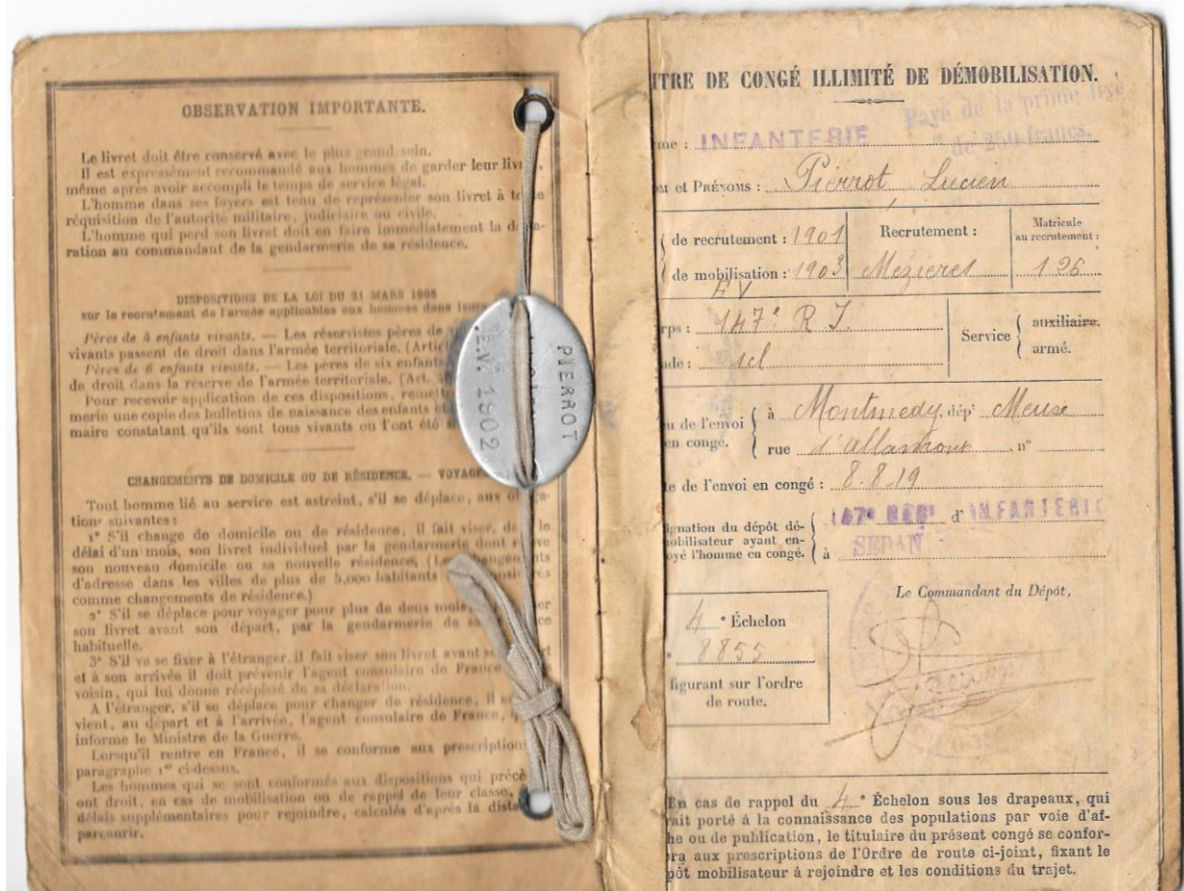 OBSERVATION IMPORTANTE.
Le livret doit être conservé avec le plus grand soin.
Il est expressément recommandé aux hommes de garder leur liv
même après avoir accompli le temps de service légal.
L'homme dans ses foyers est tenu de représenter son livret à
réquisition de l'autorité militaire, judiciaire ou civile.
L'homme qui perd son livret doit en faire immédiatement la
ration au commandant de la gendarmerie de sa résidence.
DISPOSITIONS DE LA LOI DU 21 MARS 1905
sur le recrutement de l'armée applicables aux hommes dans leurs
Pères de 4 enfants vivants. — Les réservistes pères de
vivants passent de droit dans l'armée territoriale. (Artic
Pères de 6 enfants vivants. — Les pères de six enfants
de droit dans la réserve de l'armée territoriale. (Art.
Pour recevoir application de ces dispositions, remettre
merie une copie des bulletins de naissance des enfants et
maire constatant qu'ils sont tous vivants ou l'ont été
PIERROT
E.V. 1902
CHANGEMENTS DE DOMICILE OU DE RÉSIDENCE. — VOYAGE
Tout homme lié au service est astreint, s'il se déplace, aux
tions suivantes :
1° S'il change de domicile ou de résidence, il fait viser, le
délai d'un mois, son livret individuel par la gendarmerie dont
son nouveau domicile ou sa nouvelle résidence;
d'adresse dans les villes de plus de 5,000 habitants
comme changements de résidence.)
2° S'il se déplace pour voyager pour plus de deux mois,
son livret avant son départ, par la gendarmerie de sa
habituelle.
3° S'il va se fixer à l'étranger, il fait viser son livret avant
et à son arrivée il doit prévenir l'agent consulaire de France
voisin, qui lui donne récépissé de sa déclaration.
A l'étranger, s'il se déplace pour changer de résidence, il
vient, au départ et à l'arrivée, l'agent consulaire de France,
informe le Ministre de la Guerre.
Lorsqu'il rentre en France, il se conforme aux prescription
paragraphe 1er ci-dessus.
Les hommes qui se sont conformés aux dispositions qui précè
ont droit, en cas de mobilisation ou de rappel de leur classe,
délais supplémentaires pour rejoindre, calculés d'après la dista
parcourir.
ITRE DE CONGÉ ILLIMITÉ DE DÉMOBILISATION.
Payé de la prime fixe
de 250 francs.
me : INFANTERIE
m et Prénoms : Pierrot Lucien
de recrutement : 1901 Recrutement : Matricule au recrutement :
de mobilisation : 1903 Mézières 126
EV
rps : 147e R I. Service { auxiliaire.
ade : 1cl armé.
u de l'envoi { à Montmédy dépt Meuse
en congé. rue d'Allamont n°
te de l'envoi en congé : 8.8.19
ignation du dépôt dé- { 147e REGt d'INFANTERIE
obilisateur ayant en-
oyé l'homme en congé. à SEDAN
Le Commandant du Dépôt,
4e Échelon
8855
figurant sur l'ordre
de route.
En cas de rappel du 4e Échelon sous les drapeaux, qui
rait porté à la connaissance des populations par voie d'af-
he ou de publication, le titulaire du présent congé se confor-
ra aux prescriptions de l'Ordre de route ci-joint, fixant le
pôt mobilisateur à rejoindre et les conditions du trajet.